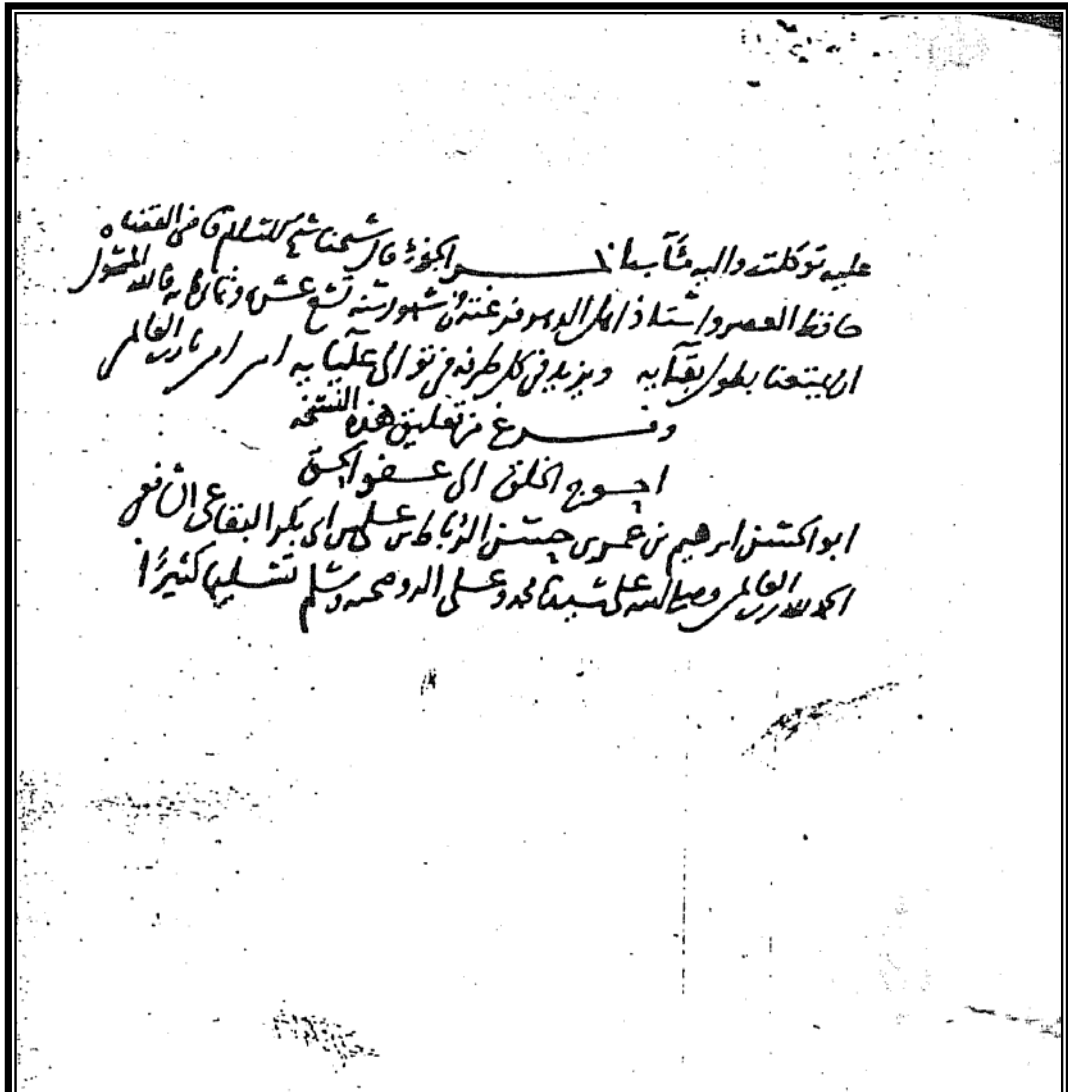 عليه توكلت واليه متاب اخر الجزء قال شيخنا شيخ الاسلام قاضى القضاه
حافظ العصر واستاذ اهل الدهر فرغته فى شهور سنه تسع عشره وثمان مايه فالله المسؤول
ان يمتعنا بطول بقايه ويزيد فى كل طرفه فى توالى عليايه امين امين يا رب العالمين
وفرغ من تعليق هذه النسخه
احوج الخلق الى عفو الحق
ابو الحسن ابرهيم بن عمر بن حسن الرباط بن على بن ابى بكر البقاعى الشافعى
الحمد لله رب العالمين وصلى الله على سيدنا محمد وعلى اله وصحبه وسلم تسليما كثيرًا